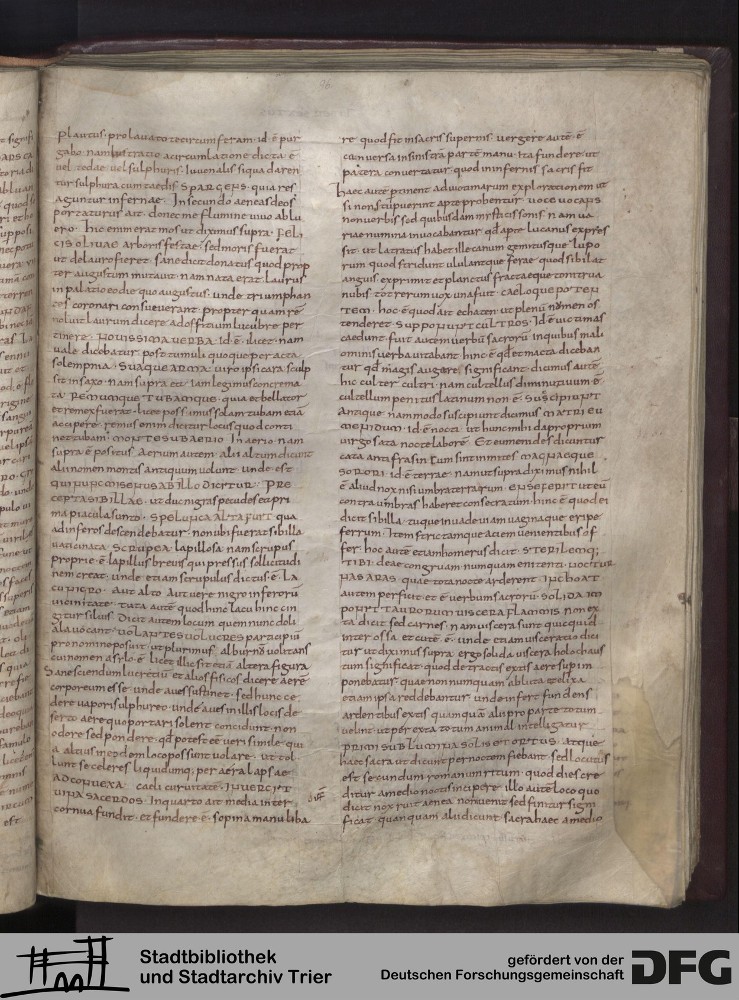 plautus· prolauato te circumferam· id· ē pur
gabo nam lustratio a circumlatione dicta· ē
uel tedae uel sulphuris· Iuuenalis siqua daren
tur sulphura cum taedis SPARGENS· quia res
aguntur infernae· In secundo aeneas deos
portaturus ait· donec me flumine uiuo ablu
ero· hic enim erat mos ut diximus supra· FELI
CIS OLIUAE arboris festae· sed moris fuerat
ut de lauro fieret· sane dicit donatus quod prop
ter augustum mutauit· nam nata erat laurus
in palatio eo die quo augustus· unde triumphan
tes coronari consueuerant· propter quam rē
noluit laurum dicere ad officium lucubre per
tinere· NOUISSIMA UERBA· Id· ē· ilicet· nam
uale dicebatur post tumuli quoque peracta
solempnia· SUAQUE ARMA· uiro ipsi cara sculp
sit in saxo· nam supra et· iam legimus concrema
ta REMUMQUE TUBAMQUE· quia et bellator
et remex fuerat· licet possimus solam tubam etiā
accipere· remus enim dicitur locus quod conti
net tubam· MONTE SUB AERIO In aerio· nam
supra ē positus Aerium autem· alii altum dicunt
alii nomen montis antiquum uolunt· unde· est
QUI NUNC MISENUS AB ILLO DICITUR· PRE
CEPTA SIBILLAE· ut duc nigras pecudes ea pri
ma piacula sunto· SPELUNCA ALTA FUIT qua
ad inferos descendebatur· non ubi fuerat sibilla
uaticinata· SCRUPEA· lapillosa· nam scrupus
proprie· ē lapillus breuis qui pressus sollicitudi
nem creat· unde etiam scrupulus dictus· ē· LA
CU NIGRO· Aut alto· Aut uere nigro inferorū
uicinitate· tuta autē quod hinc lacu hinc cin
gitur siluis· Dicit autem locum quem nunc doli
ola uocant· UOLANTES UOLUCRES participiū
pro nomine posuit· ut plurimus alburnū uolitans
cui nomen asylo· ē· licet illic sit etiā altera figura
Sane sciendum lucretiū et alios fisicos dicere aerē
corporeum esse· unde aues sustinet· sed hunc ce
dere uapori sulphureo· unde aues in illis locis de
serto aere quo portari solent concidunt· non
odore sed pondere· qd̄ potest eē ueri simile· qui
a altius in eodem loco possunt uolare· ut tol
lunt se celeres liquidumq; per aera lapsae·
AD CONUEXA· caeli curuitate· INUERGIT
UINA SACERDOS· In quarto ait media inter
cornua fundit· et fundere· ē· sopina manu liba
re· quod fit in sacris supernis· uergere autē· ē
conuersa in sinistrā partē manu· ita fundere· ut
patera conuertatur· quod in infernis sacris fit
haec autē ptinent ad uictimarum explorationem ut
si non stupuerint apte probentur· UOCE UOCANS
non uerbis sed quibusdam mysticis sonis nam ua
riae numina inuocabantur· qd̄ aput lucanus expres
sit· ut latratus habet ille canum gemitusque lupo
rum quod stridunt ululantque ferae· quod sibilat
anguis· exprimit et planctus fractaeque tonitrua
nubis· tot rerum uox una fuit· CAELOQUE POTEN
TEM· hoc· ē quod ait echaten· ut plenū nomen os
tenderet· SUPPONUNT CULTROS· Id· ē uictimas
caedunt· fuit autem uerbū sacrorū in quibus mali
ominis uerba uitabant hinc· ē· qd̄ et macta diceban
tur qd̄ magis augere significant· dicimus autē
hic culter cultri· nam cultellus diminutiuum· ē
cultellum penitus latinum non· ē· SUSCIPIUNT
Antique· nam modo suscipiunt dicimus MATRI EU
MENIDUM· id· ē nocti· ut hunc mihi da proprium
uirgo sata nocte laborē· Et eumenides dicuntur
cata antifrasin cum sint inmites MAGNAEQUE
SORORI· id· ē terrae· nam ut supra diximus nihil
ē aliud nox nisi umbra terrarum· ENSE FERIT ut eū
contra umbras haberet consecratum· hinc· ē quod ei
dicit sibilla· tuque inuade uiam uaginaque eripe
ferrum· Item strictamque aciem uenientibus of
fer· hoc autē etiam homerus dicit· STERILEMQ;
TIBI· deae congruam numquam enitenti· NOCTUR
NAS ARAS· quae tota nocte arderent· INCHOAT
autem perficit· et· ē uerbum sacrorū· SOLIDA IM
PONIT TAURORUM UISCERA FLAMMIS· non ex
ta dicit sed carnes· nam uiscera sunt quicquid
inter ossa· et cutē· ē· unde etiam uisceratio dici
tur ut diximus supra· ergo solida uiscera holochaus
tum significat· quod detractis extis aere supim
ponebatur· quae non numquam abluta et elixa
etiam ipsa reddebantur· unde infert fundens
ardentibus extis· quamquā alii pro parte totum
uelint· ut per exta totum animal intelligatur
PRIMI SUB LUMINA SOLIS ET ORTUS· Atque
haec sacra ut dicunt per noctem fiebant· sed locutus
est secundum romanum ritum· quod dies cre
ditur a medio noctis incipere· illo autē loco quo
dicit nox ruit aenea non uenit sed finitur signi
ficat· quamquam alii dicunt sacra haec a medio
Stadtbibliothek
und Stadtarchiv Trier
gefördert von der
Deutschen Forschungsgemeinschaft
DFG